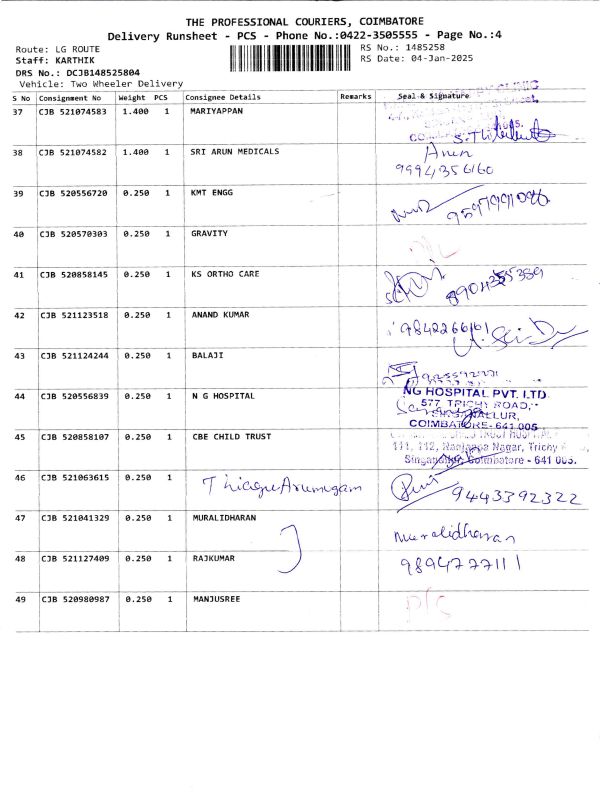 THE PROFESSIONAL COURIERS, COIMBATORE
Delivery Runsheet - PCS - Phone No.:0422-3505555 - Page No.:4
Route: LG ROUTE
RS No.: 1485258
Staff: KARTHIK
RS Date: 04-Jan-2025
DRS No.: DCJB148525804
Vehicle: Two Wheeler Delivery
S No Consignment No Weight PCS Consignee Details Remarks Seal & Signature
37 CJB 521074583 1.400 1 MARIYAPPAN
38 CJB 521074582 1.400 1 SRI ARUN MEDICALS Arun
9994356160
39 CJB 520556720 0.250 1 KMT ENGG
40 CJB 520570303 0.250 1 GRAVITY
41 CJB 520858145 0.250 1 KS ORTHO CARE
42 CJB 521123518 0.250 1 ANAND KUMAR 9842266161
43 CJB 521124244 0.250 1 BALAJI
44 CJB 520556839 0.250 1 N G HOSPITAL NG HOSPITAL PVT. LTD
577 TRICHY ROAD,
SINGANALLUR,
COIMBATORE - 641 005
45 CJB 520858107 0.250 1 CBE CHILD TRUST
111, 112, Nanjappa Nagar, Trichy
Singanallur, Coimbatore - 641 005.
46 CJB 521063615 0.250 1 ThiaguArumugam 9443392322
47 CJB 521041329 0.250 1 MURALIDHARAN Muralidharan
48 CJB 521127409 0.250 1 RAJKUMAR 9894777111
49 CJB 520980987 0.250 1 MANJUSREE D/C